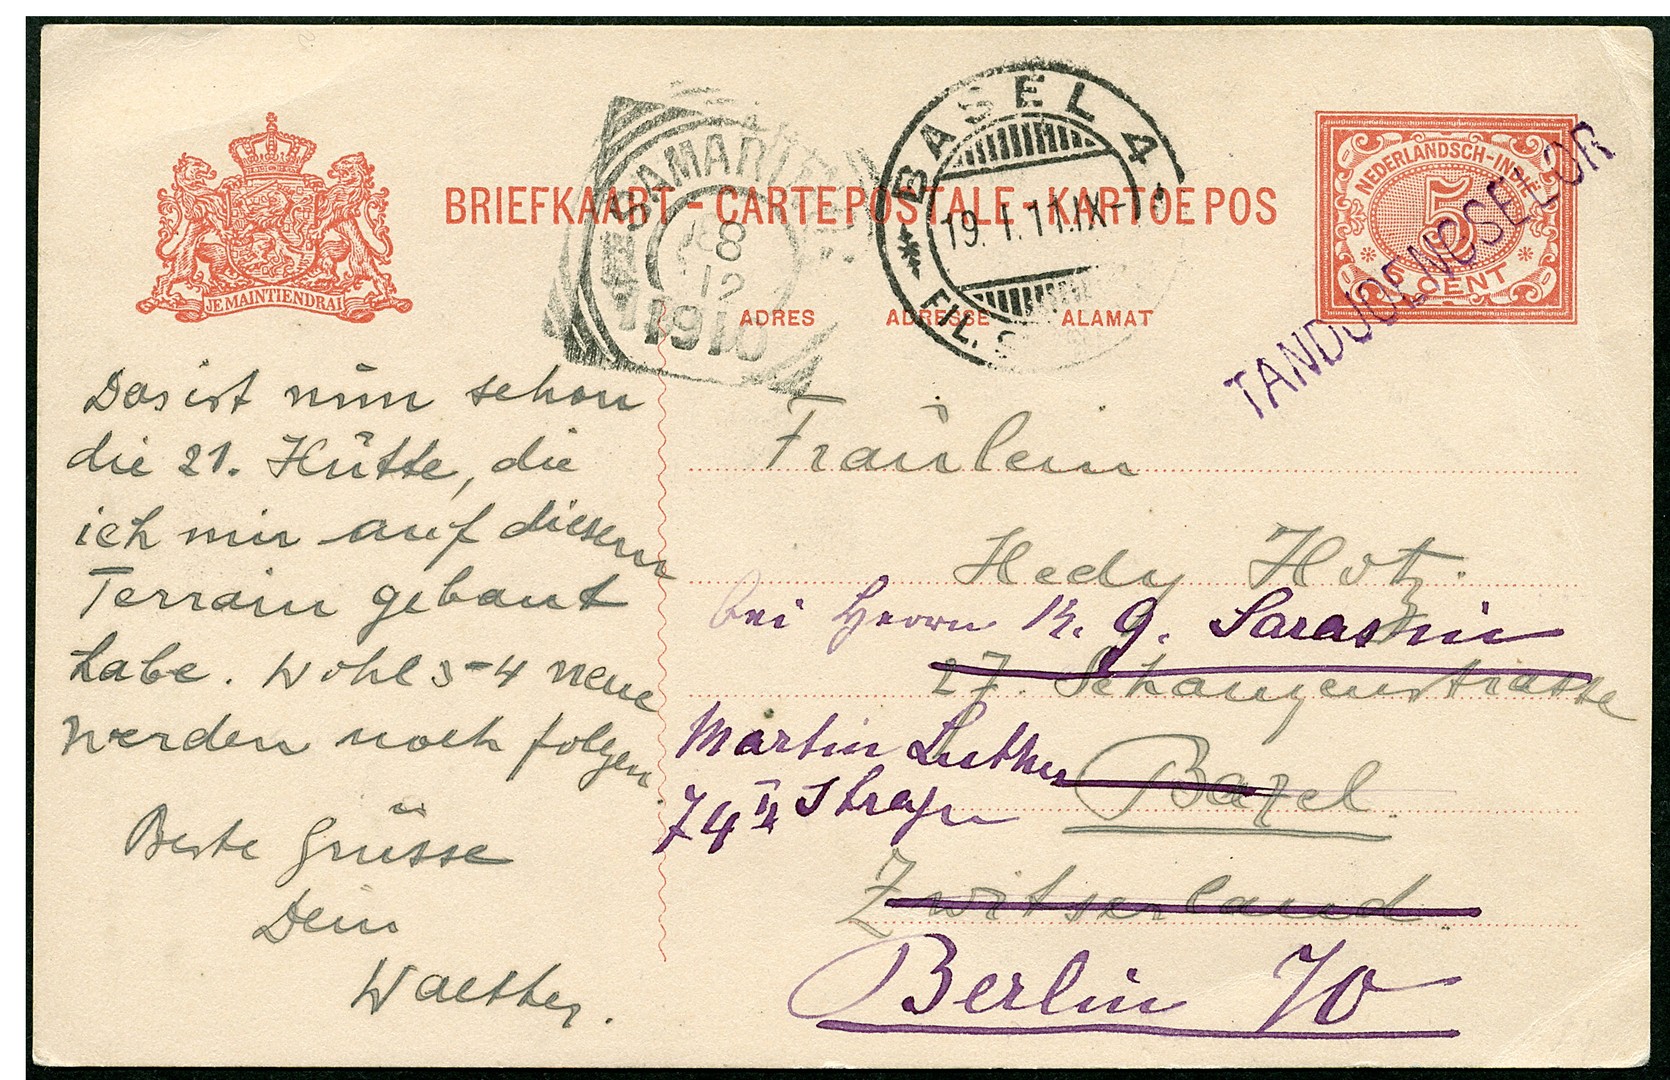 BRIEFKAART - CARTE POSTALE - KARTOE POS
JE MAINTIENDRAI
ADRES ADRESSE ALAMAT
SAMARINDA
8
12
1910
BASEL 4
19.I.11.IX-
FIL.
NEDERLANDSCH-INDIË
5
5 CENT
TANDJOENGSELOR
Das ist nun schon
die 21. Hütte, die
ich mir auf diesem
Terrain gebaut
habe. Wohl 3-4 neue
werden noch folgen.
Beste Grüsse
Dein
Walther.
Fräulein
Hedy Hotz.
bei Herrn R. G. Sarasin
27. Schanzenstrasse
Martin Luther
74 II Strasse
Basel.
Zwitserland
Berlin W